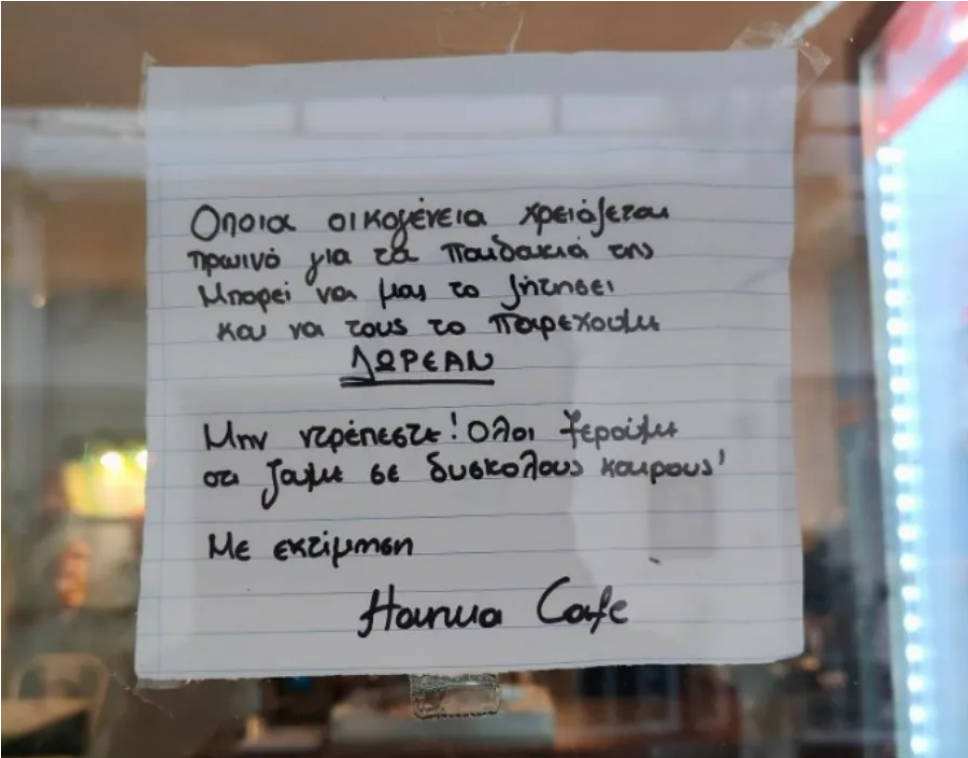 Οποια οικογένεια χρειάζεται
πρωινό για τα παιδακιά της
Μπορεί να μας το ζήτησει
και να τους το παρεχουμε
ΔΩΡΕΑΝ
Μην ντρέπεστε! Ολοι ξερούμε
οτι ζουμε σε δυσκολους καιρους'
Με εκτίμηση
Cafe